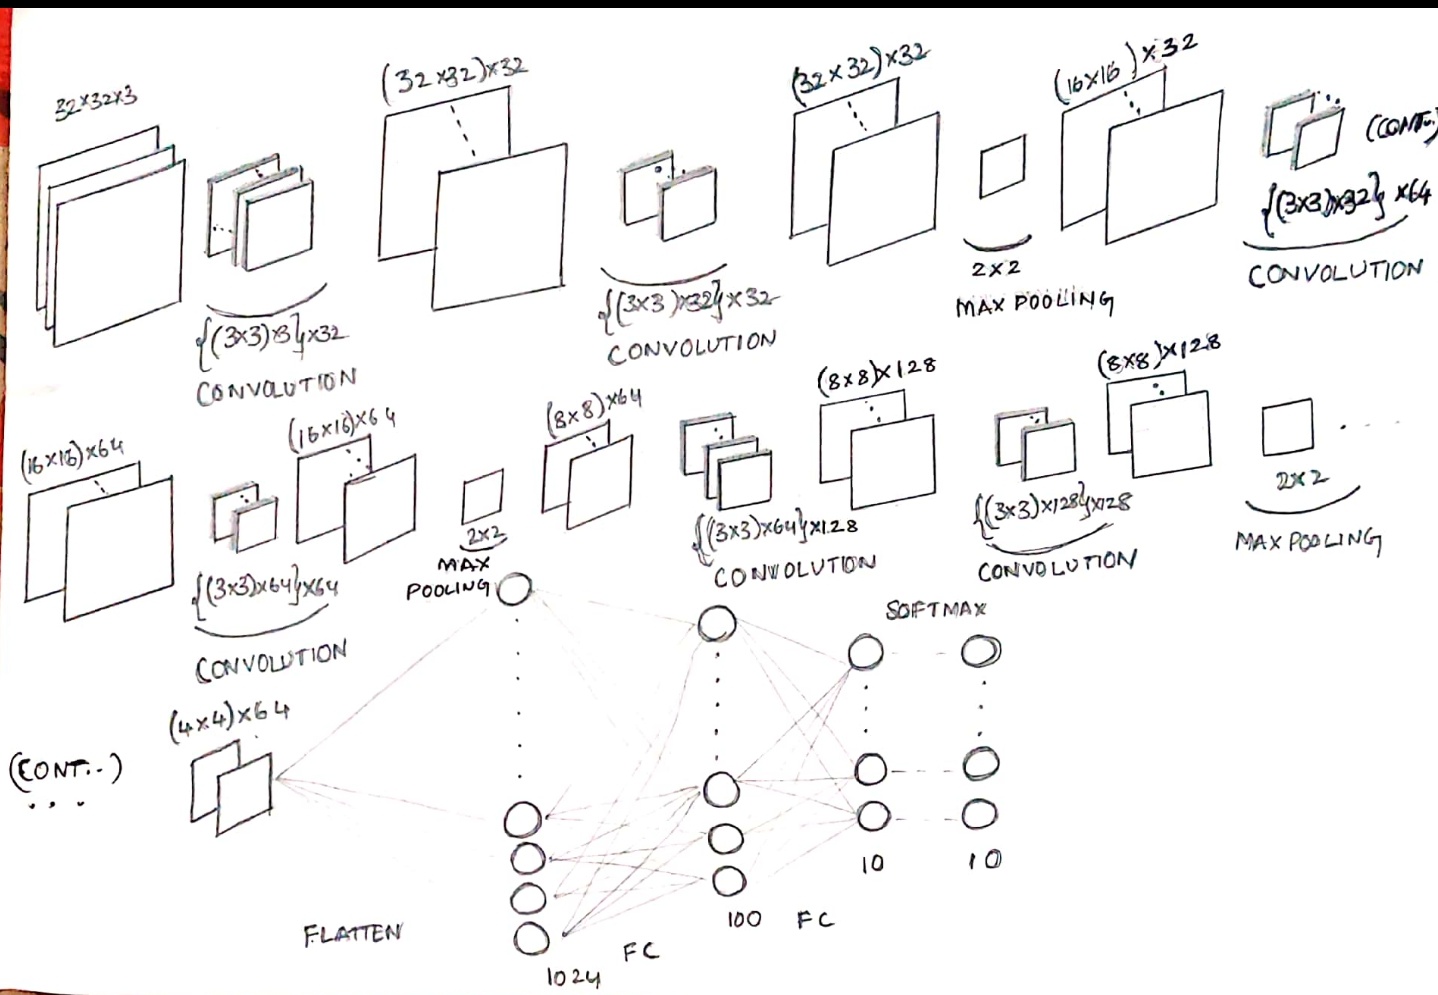 32×32×3
{(3×3)×3}×32
CONVOLUTION
(32×32)×32
{(3×3)×32}×32
CONVOLUTION
(32×32)×32
2×2
MAX POOLING
(16×16)×32
{(3×3)×32}×64
CONVOLUTION
(CONT..)
(16×16)×64
{(3×3)×64}×64
CONVOLUTION
(16×16)×64
2×2
MAX
POOLING
(8×8)×64
{(3×3)×64}×128
CONVOLUTION
(8×8)×128
{(3×3)×128}×128
CONVOLUTION
(8×8)×128
2×2
MAX POOLING
(CONT..)
(4×4)×64
FLATTEN
1024
FC
100
FC
10
SOFTMAX
10